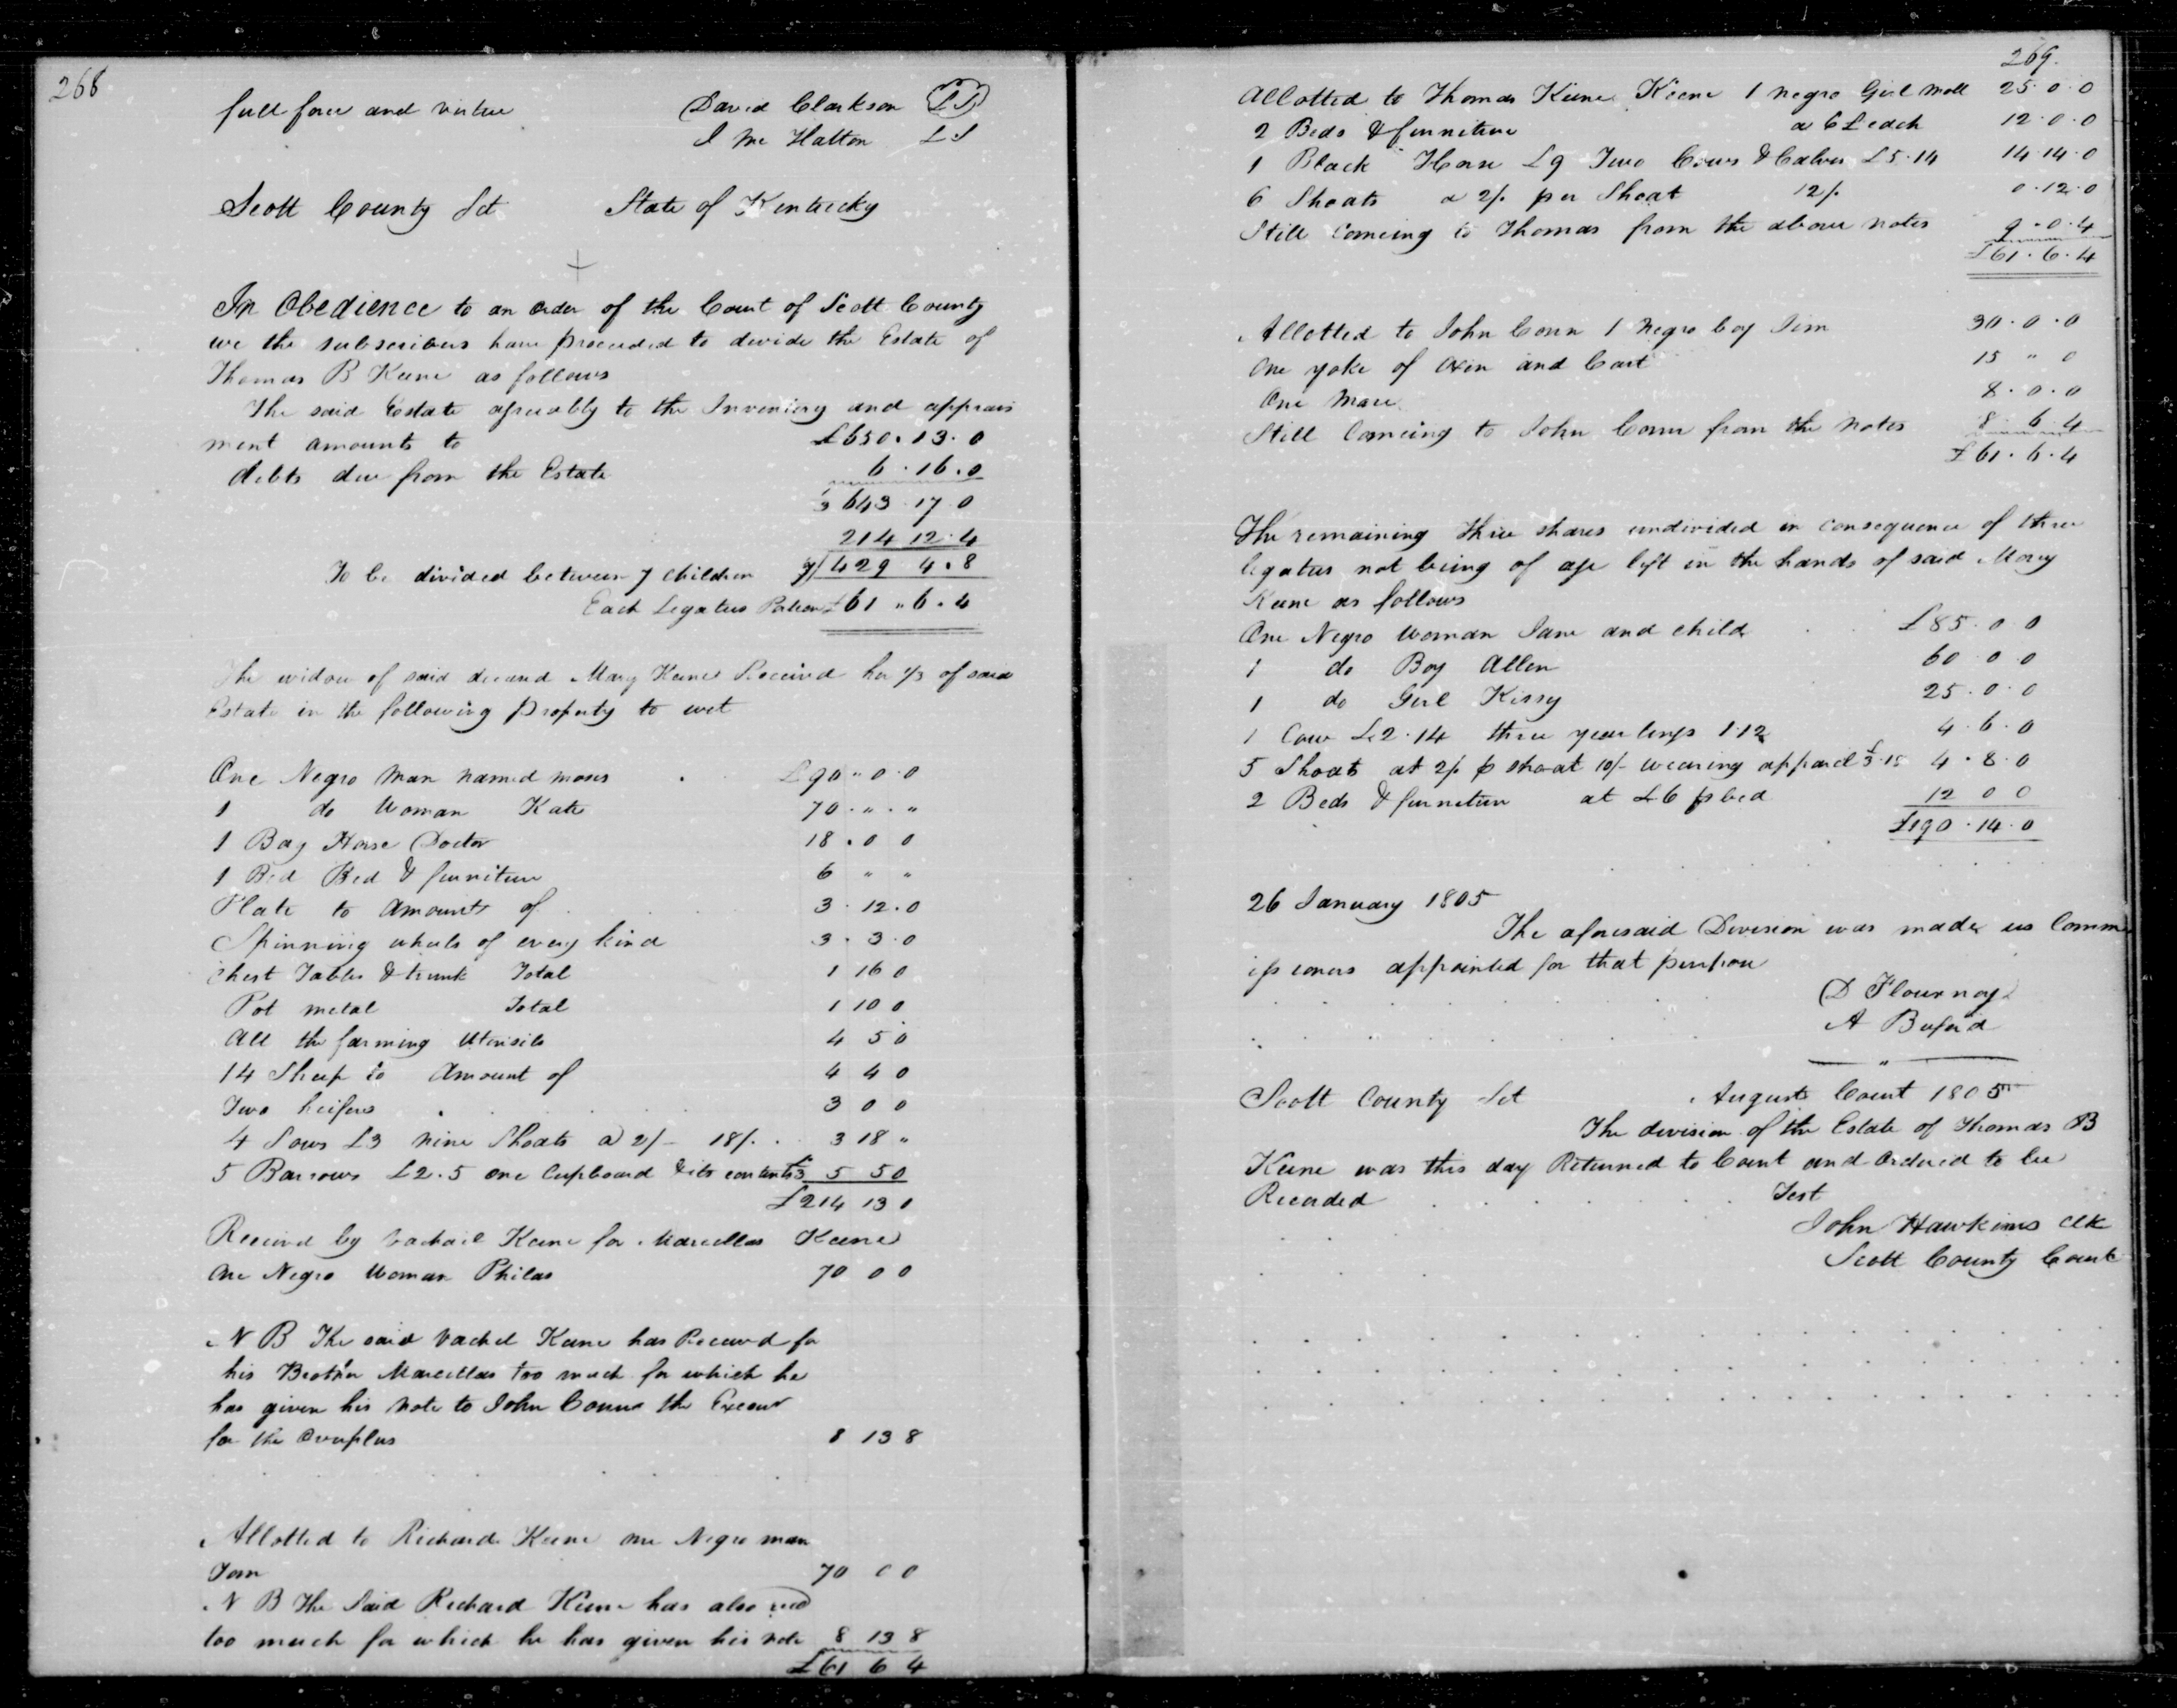 268
full force and virtue David Clarkson LS
J Mc Hatton LS
Scott County Sct State of Kentucky
In Obedience to an order of the Court of Scott County
we the subscribers have proceeded to devide the Estate of
Thomas B Keene as follows
The said Estate agreeably to the Inventory and apprais
ment amounts to £650.13.0
debts due from the Estate 6.16.0
3 643.17.0
214 12.4
To be divided between 7 children 7) 429 4.8
Each Legatees Potion £61 " 6.4
The widow of said deceand Mary Keene Received her 1/3 of said
Estate in the following Property to wit
One Negro Man named moses £90 " 0.0
1 do Woman Kate 70 . " . "
1 Bay Horse Doctor 18 . 0 0
1 Bed Bed & furniture 6 " "
Plate to Amount of 3.12.0
Spinning wheels of every kind 3.3.0
Chest Tables & trunk Total 1 16 0
Pot metal Total 1 10 0
All the farming Utensils 4 5 0
14 Sheep to Amount of 4 4 0
Two heifers 3 0 0
4 Sows £3 nine Shoats a 2/- 18/. 3 18 "
5 Barrows £2.5 one Cupboard & its contents £3 5 5 0
£214 13 0
Received by Vachail Keene for Marcellas Keene
One Negro Woman Philas 70 0 0
N B The said Vachel Keene has Received for
his Brother Marcellas too much for which he
has given his note to John Conn the Execut
for the Overplus 8 13 8
Allotted to Richard Keene one Negro man
Tom 70 0 0
N B The Said Richard Keene has also recd
too much for which he has given his note 8 13 8
£61 6 4
269.
Allotted to Thomas Keene Keene 1 negro Girl Moll 25.0.0
2 Beds & furniture a 6£ each 12.0.0
1 Black Horse £9 Two Cows & Calves £5.14 14.14.0
6 Shoats a 2/. per Shoat 12/. 0.12.0
Still Comeing to Thomas from the above notes 9.0.4
£61.6.4
Allotted to John Conn 1 Negro boy Jim 30.0.0
One yoke of Oxen and Cart 15 " 0
One Mare 8.0.0
Still Comeing to John Conn from the notes 8 6 4
£61.6.4
The remaining three shares undivided in consequence of three
legatees not being of age left in the hands of said Mary
Keene as follows
One Negro Woman Jane and child £85.0 0
1 do Boy Allen 60 0 0
1 do Girl Kissy 25.0.0
1 Cow £2.14 three yearlings 1.12 4.6.0
5 Shoats at 2/. p shoat 10/- wearing apparel £3.18 4.8.0
2 Beds & furniture at £6 p bed 12 0 0
£190.14.0
26 January 1805
The aforesaid Devision was made us Comm
issioners appointed for that purpose
D Flournoy
A Buford
Scott County Sct August Court 1805
The devision of the Estate of Thomas B
Keene was this day Returned to Court and Ordered to be
Recorded Test
John Hawkins Clk
Scott County Court